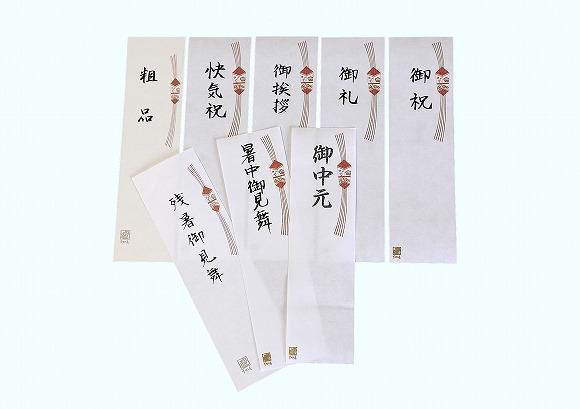 粗品
快気祝
御挨拶
御礼
御祝
残暑御見舞
暑中御見舞
御中元